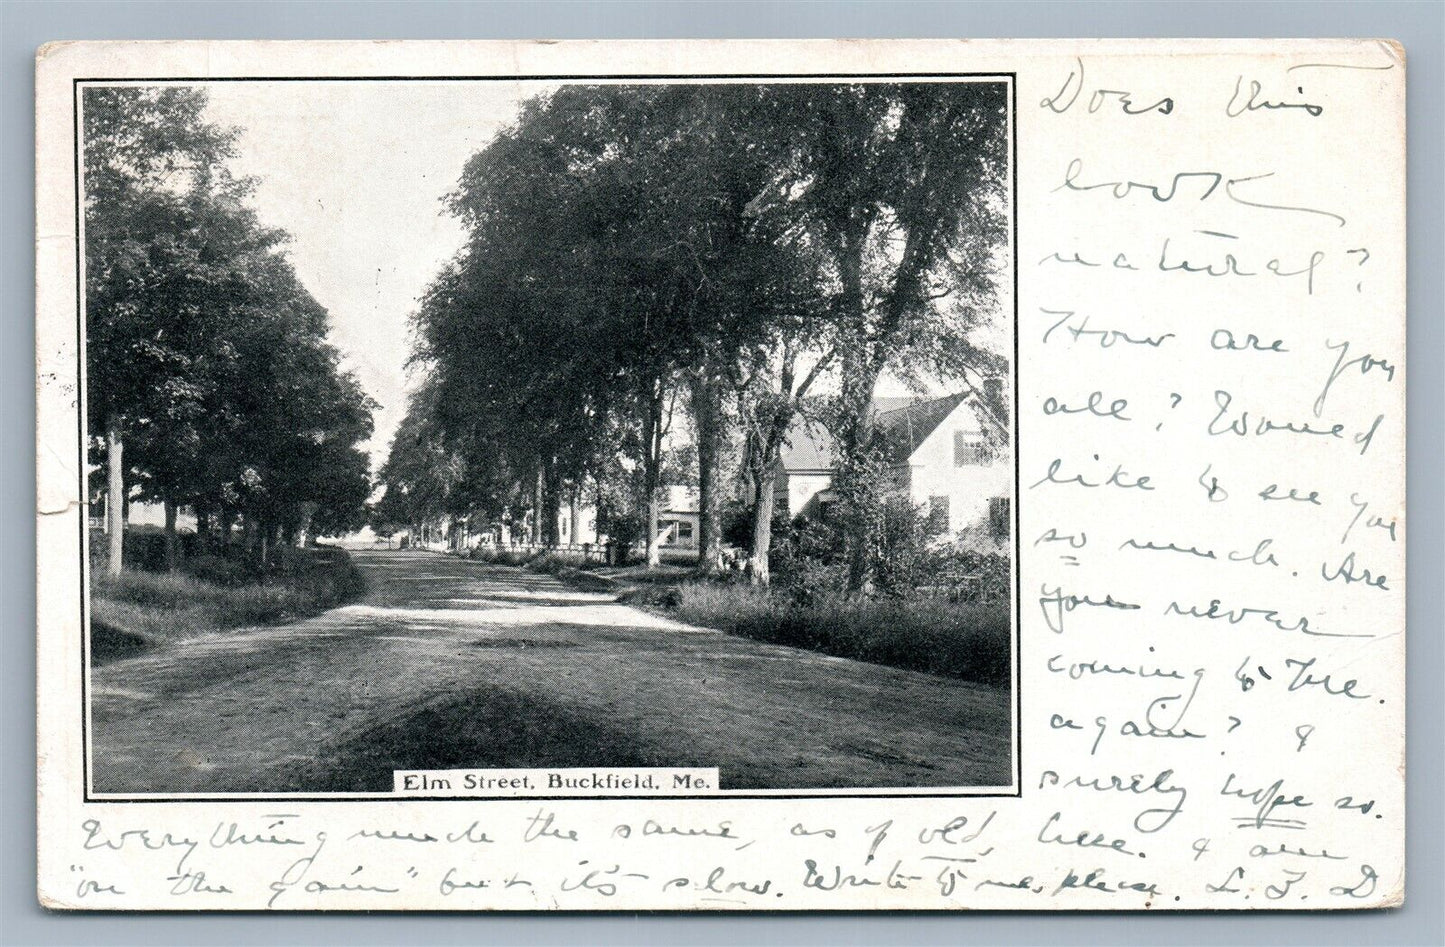 Does this
look
natural?
How are you
all? Would
like to see you
so much. Are
you never
coming to Me.
again? I
surely hope so.
Elm Street, Buckfield, Me.
Everything much the same, as of old, here. I am
"on the gain" but it's slow. Write to me, please. L. F. D